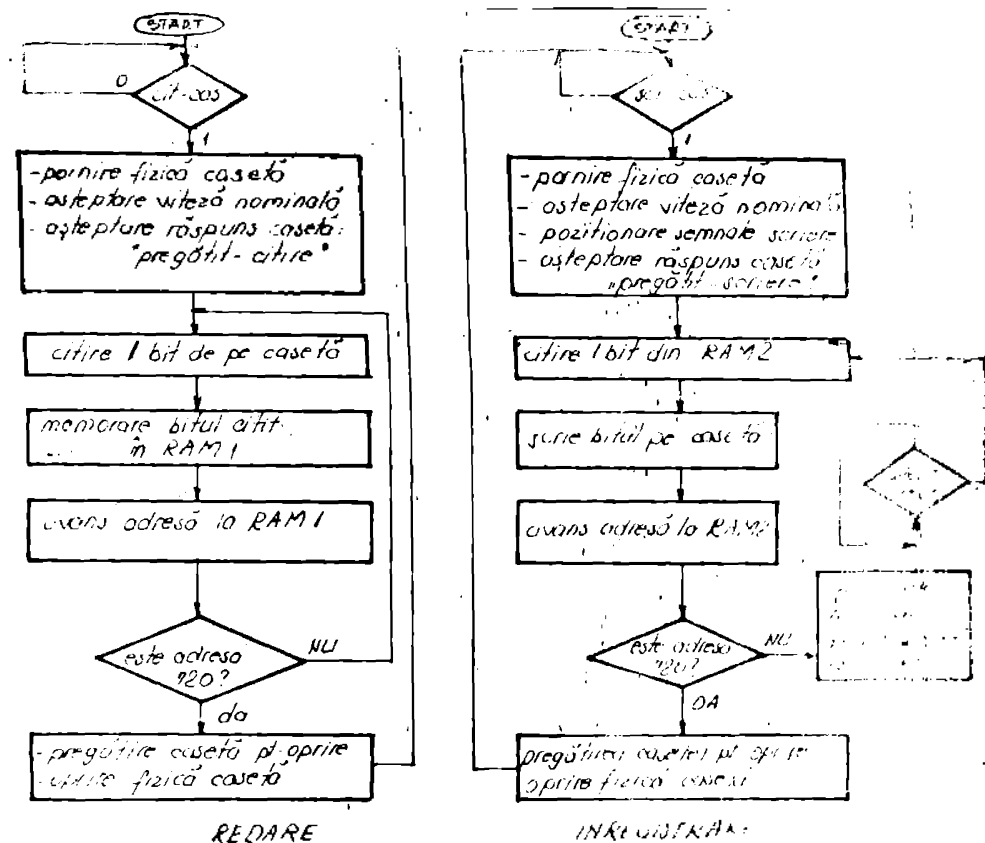 START
0
cit-cas
1
-pornire fizică casetă
- așteptare viteză nominală
- așteptare răspuns casetă:
"pregătit-citire"
citire 1 bit de pe casetă
memorare bitul citit
în RAM1
avans adresă la RAM1
este adresa
720?
NU
da
- pregătire casetă pt. oprire
- oprire fizică casetă
REDARE
START
1
- pornire fizică casetă
- așteptare viteză nominală
- poziționare semnale scriere
- așteptare răspuns casetă
"pregătit-scriere"
citire 1 bit din RAM2
scrie bitul pe casetă
avans adresă la RAM2
este adresa
720?
NU
DA
pregătirea casetei pt oprire
oprire fizică